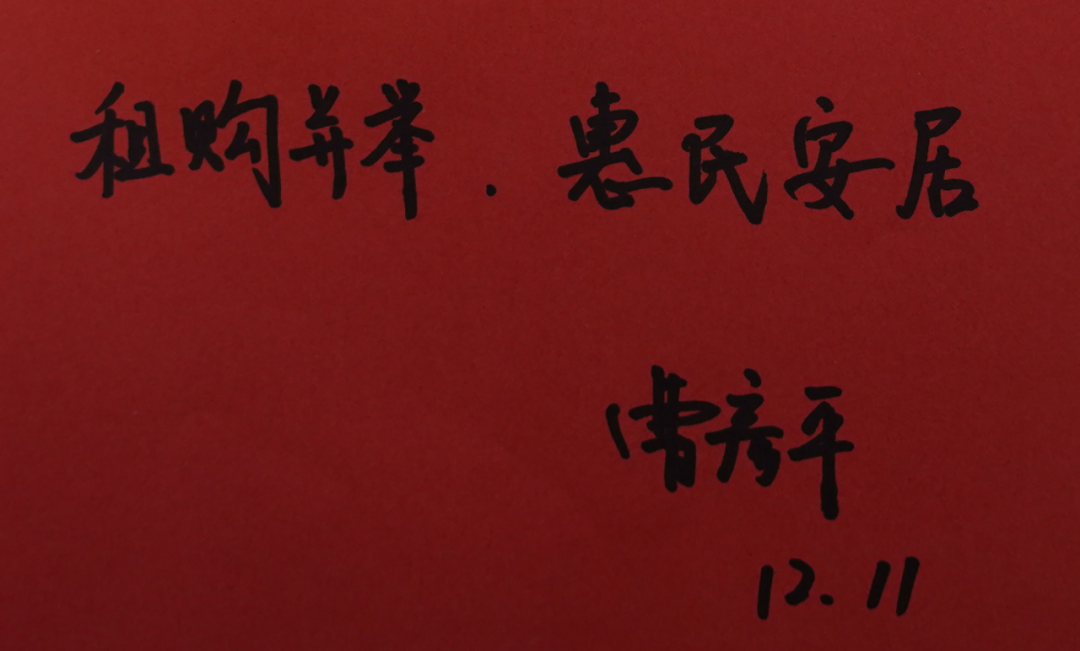 租购并举.惠民安居
曹彦平
12.11